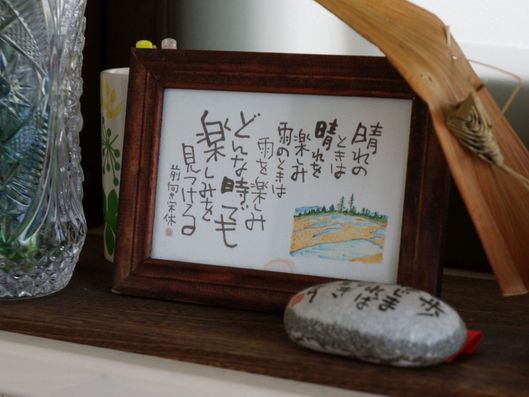 晴れの
ときは
晴れを
楽しみ
雨のときは
雨を楽しみ
どんな時でも
楽しみを
見つける